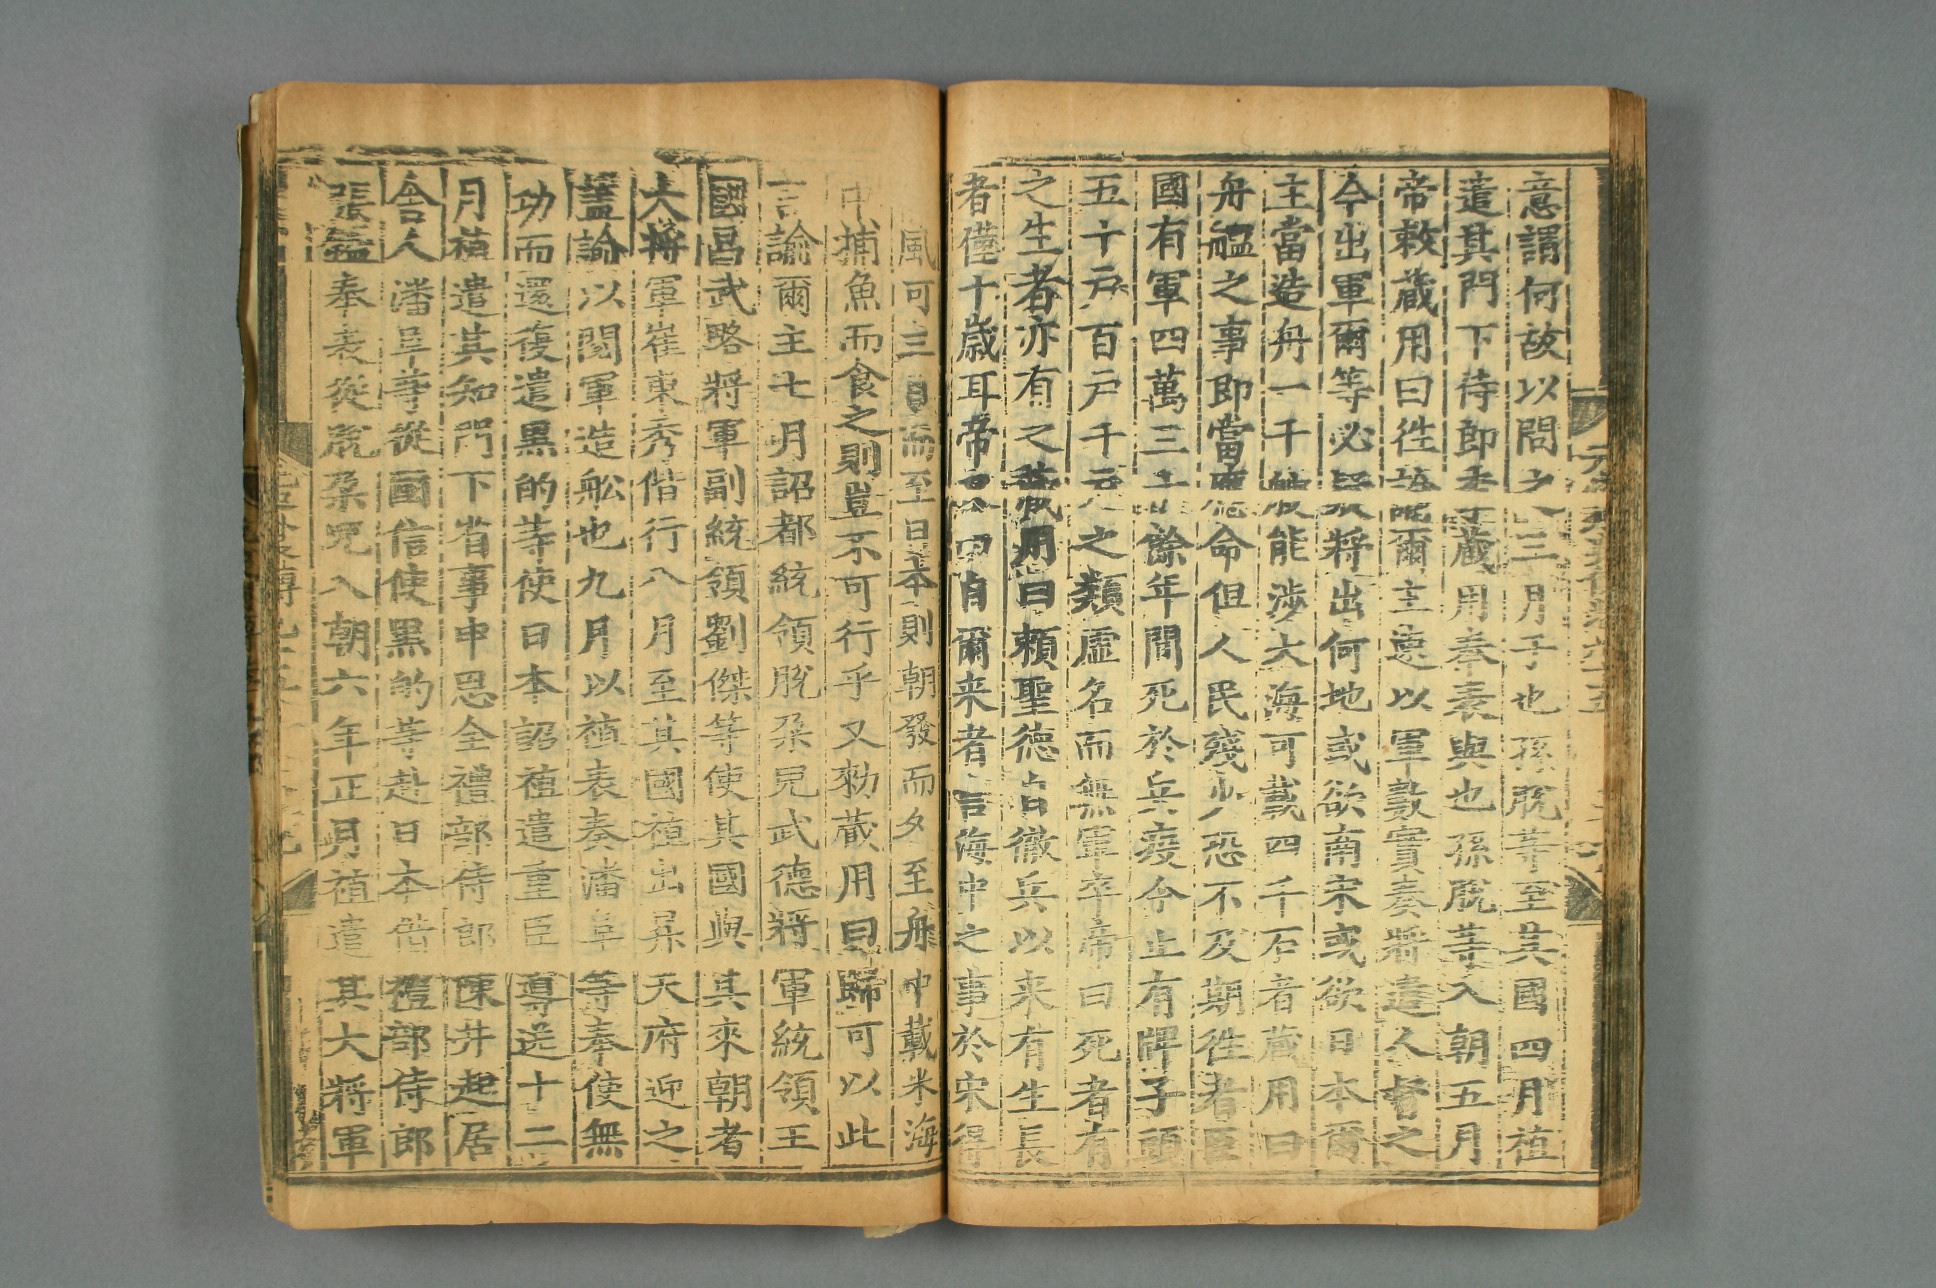 意謂何故以問之三月子也孫脫等至其國四月禃
遣其門下侍郎李藏用奉表與也孫脫等入朝五月
帝敕藏用曰徃諭爾主速以軍數實奏將遣人督之
今出軍爾等必疑將出何地或欲南宋或欲日本爾
主當造舟一千艘能涉大海可載四千石者藏用曰
舟艦之事即當應命但人民殘少恐不及期徃者臣
國有軍四萬三十餘年間死於兵疫今止有牌子頭
五十戶百戶千戶之類虛名而無軍卒帝曰死者有
之生者亦有之藏用曰賴聖德自徹兵以来有生長
者僅十歲耳帝又曰自爾来者言海中之事於宋得
風可三日而至日本則朝發而夕至舟中載米海
中捕魚而食之則豈不可行乎又勑藏用曰歸可以此
言諭爾主七月詔都統領脫朶兒武德將軍統領王
國昌武略將軍副統領劉傑等使其國與其來朝者
大將軍崔東秀偕行八月至其國禃出昇天府迎之
蓋諭以閱軍造舩也九月以禃表奏潘阜等奉使無
功而還復遣黑的等使日本詔禃遣重臣導送十二
月禃遣其知門下省事申思全禮部侍郎陳井起居
舍人潘阜等從國信使黑的等赴日本借禮部侍郎
張鎰奉表從脫朶兒入朝六年正月禃遣其大將軍